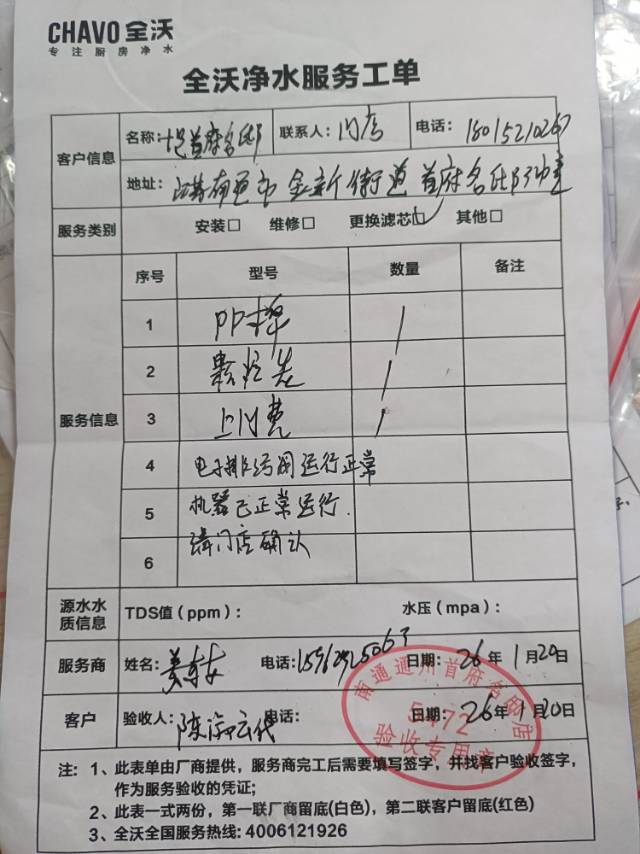 CHAVO 全沃
专注厨房净水
全沃净水服务工单
客户信息
名称: 首府名邸 联系人: 门店 电话: 18015210267
地址: 江苏南通市金新街道首府名邸
服务类别 安装□ 维修□ 更换滤芯☑ 其他□
服务信息
序号 型号 数量 备注
1 PP棉 1
2 颗粒炭 1
3 上门费 1
4 电子排污阀运行正常
5 机器已正常运行.
6 请门店确认
源水水质信息 TDS值(ppm): 水压(mpa):
服务商 姓名: 电话: 日期: 26年1月20日
客户 验收人: 电话: 日期: 26年1月20日
南通通州首府名邸店
5472
验收专用章
注: 1、此表单由厂商提供，服务商完工后需要填写签字，并找客户验收签字，
作为服务验收的凭证;
2、此表一式两份，第一联厂商留底(白色)，第二联客户留底(红色)
3、全沃全国服务热线: 4006121926